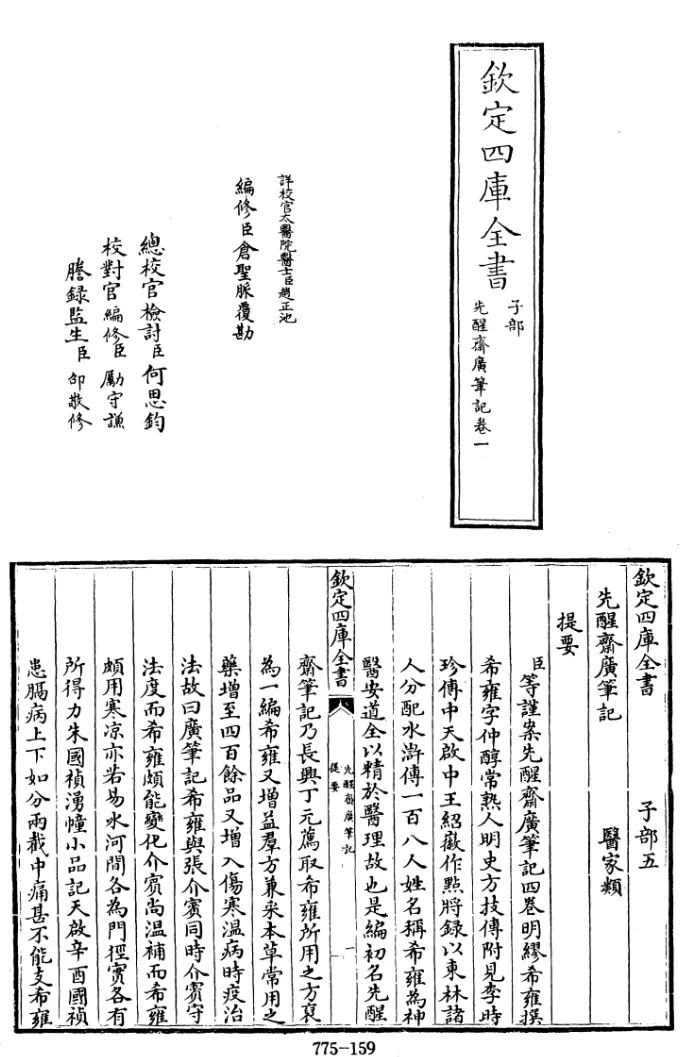 欽定四庫全書
子部
先醒齋廣筆記卷一
詳校官太醫院醫士臣趙正池
編修臣倉聖脈覆勘
總校官檢討臣何思鈞
校對官編修臣勵守謙
謄録監生臣邵敬修
欽定四庫全書 子部五
先醒齋廣筆記 醫家類
提要
臣等謹案先醒齋廣筆記四卷明繆希雍撰
希雍字仲醇常熟人明史方技傳附見李時
珍傳中天啟中王紹徽作點將録以東林諸
人分配水滸傳一百八人姓名稱希雍為神
醫安道全以精於醫理故也是編初名先醒
欽定四庫全書
先醒齋廣筆記
提要
一
齋筆記乃長興丁元薦取希雍所用之方裒
為一編希雍又增益羣方兼采本草常用之
藥增至四百餘品又增入傷寒温病時疫治
法故曰廣筆記希雍與張介賓同時介賓守
法度而希雍頗能變化介賓尚温補而希雍
頗用寒凉亦若易水河間各為門徑實各有
所得力朱國禎湧幢小品記天啟辛酉國禎
患膈病上下如分兩截中痛甚不能支希雍
775-159